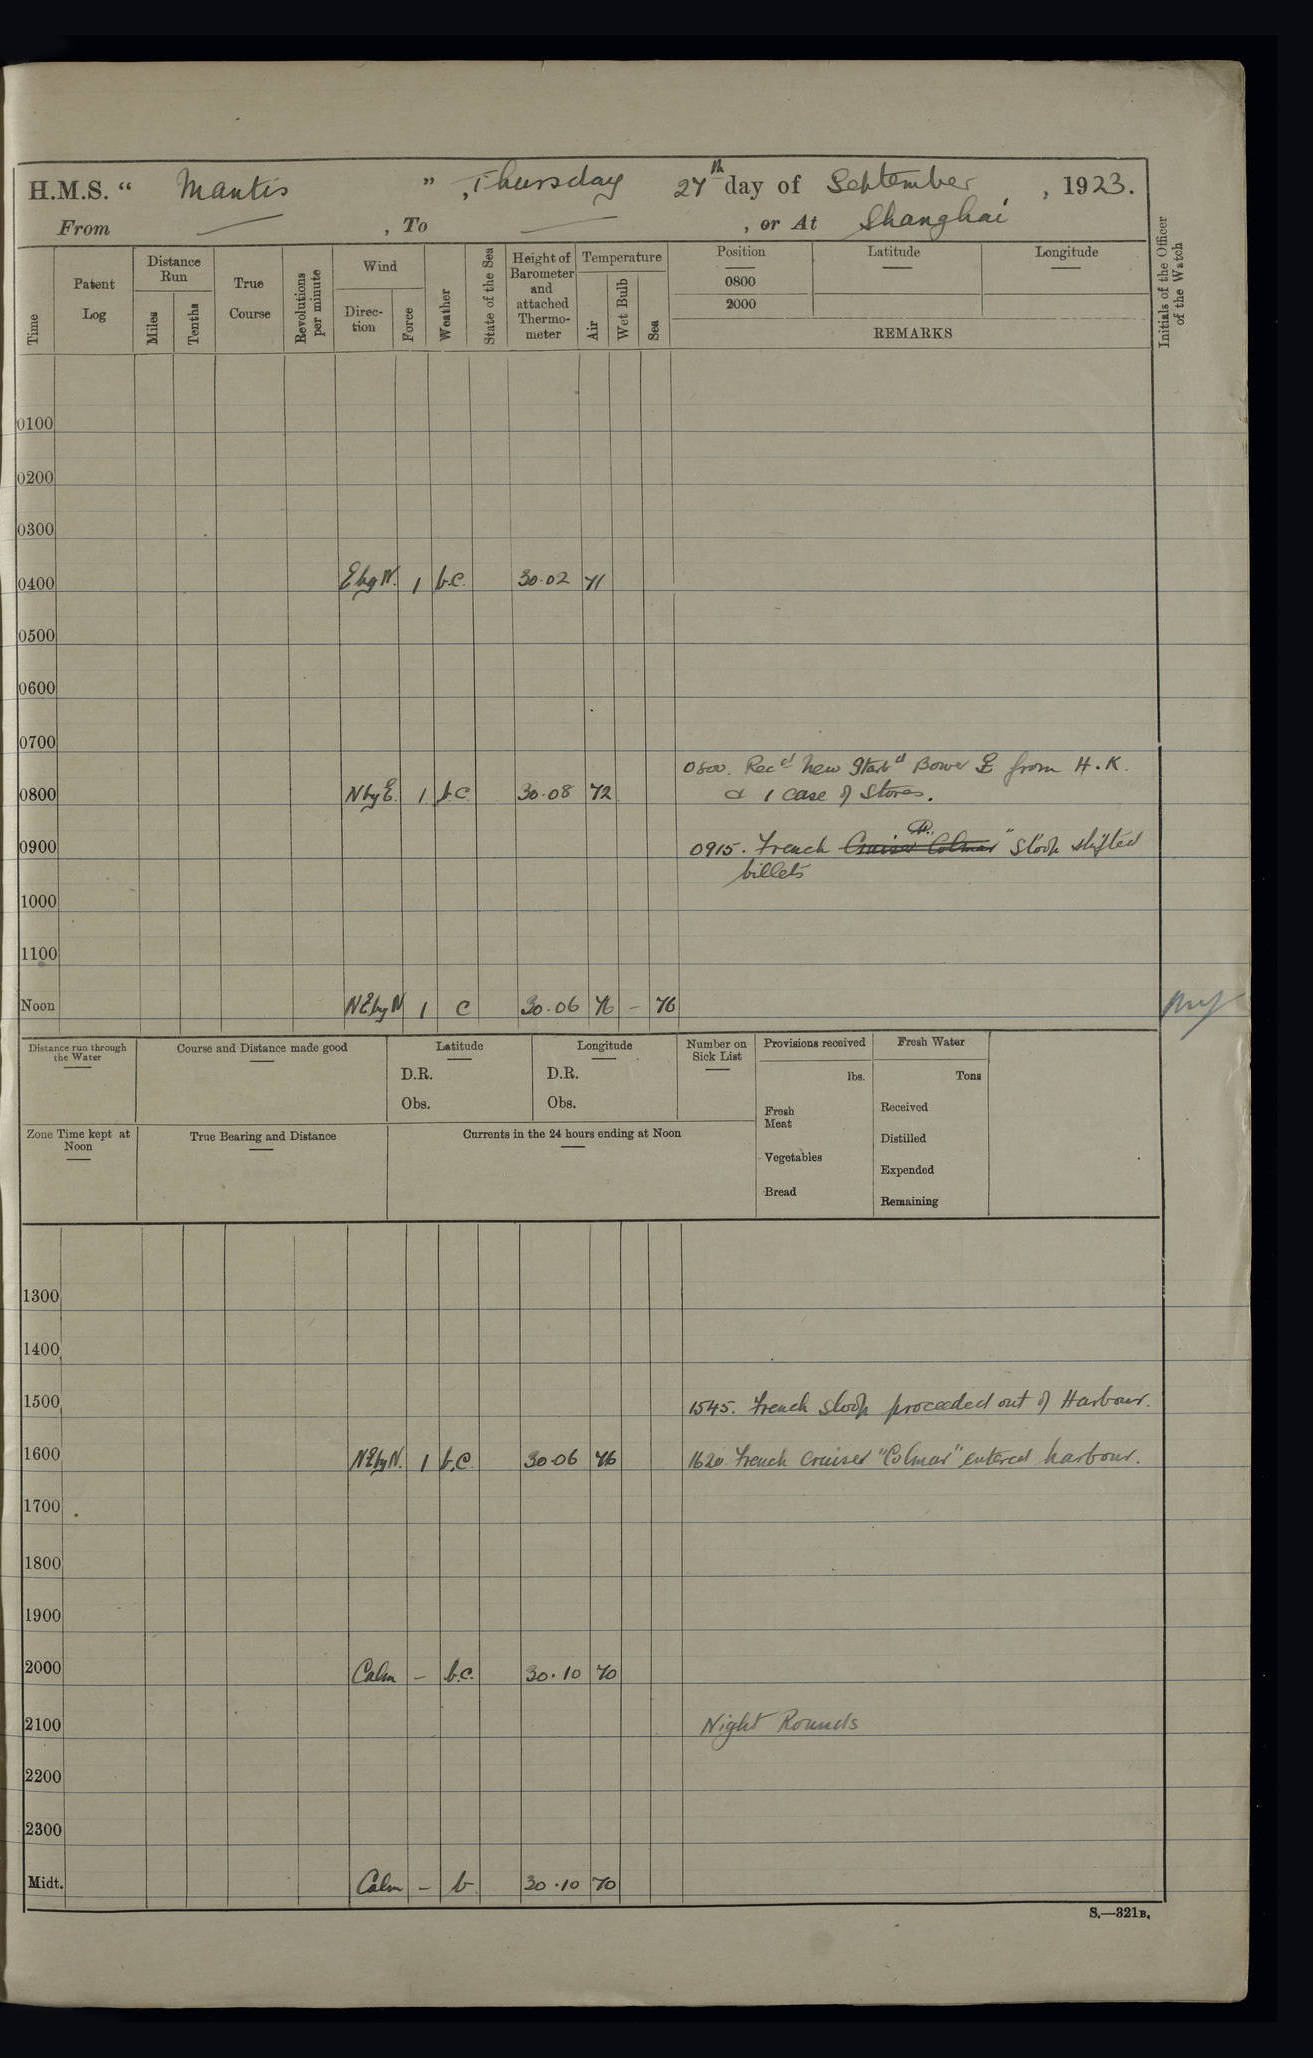 H.M.S. “ Mantis ”, Thursday 27th day of September, 1923.
From — , To — , or At Shanghai
Time
Patent Log
Distance Run
Miles
Tenths
True Course
Revolutions per minute
Wind
Direc-tion
Force
Weather
State of the Sea
Height of Barometer and attached Thermo-meter
Temperature
Air
Wet Bulb
Sea
Position
0800
2000
Latitude
Longitude
REMARKS
Initials of the Officer of the Watch
0100
0200
0300
0400 E by N. 1 b.c. 30.02 71
0500
0600
0700
0800. Recd New Starbd Bower from H.K.
0800 N by E. 1 b.c. 30.08 72 & 1 case of Stores.
0900 0915. French Cruiser Colmar Sloop shifted
billets
1000
1100
Noon NE by N 1 c 30.06 76 – 76
Distance run through the Water
Course and Distance made good
Latitude
D.R.
Obs.
Longitude
D.R.
Obs.
Number on Sick List
Provisions received
lbs.
Fresh Meat
Vegetables
Bread
Fresh Water
Tons
Received
Distilled
Expended
Remaining
Zone Time kept at Noon
True Bearing and Distance
Currents in the 24 hours ending at Noon
1300
1400
1500 1545. French Sloop proceeded out of Harbour.
1600 NE by N. 1 b.c. 30.06 76 1620 French Cruiser "Colmar" entered harbour.
1700
1800
1900
2000 Calm – b.c. 30.10 70
2100 Night Rounds
2200
2300
Midt. Calm – b 30.10 70
S.—321B.